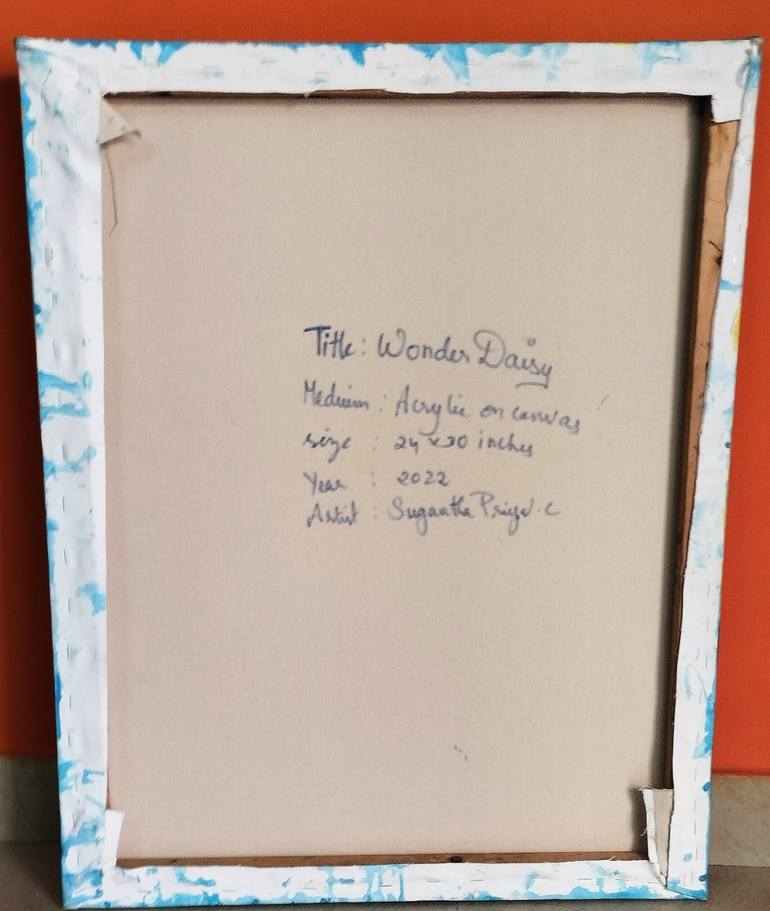 Title: Wonder Daisy
Medium: Acrylic on canvas
size : 24 x30 inches
Year : 2022
Artist : Sugantha Priya.c